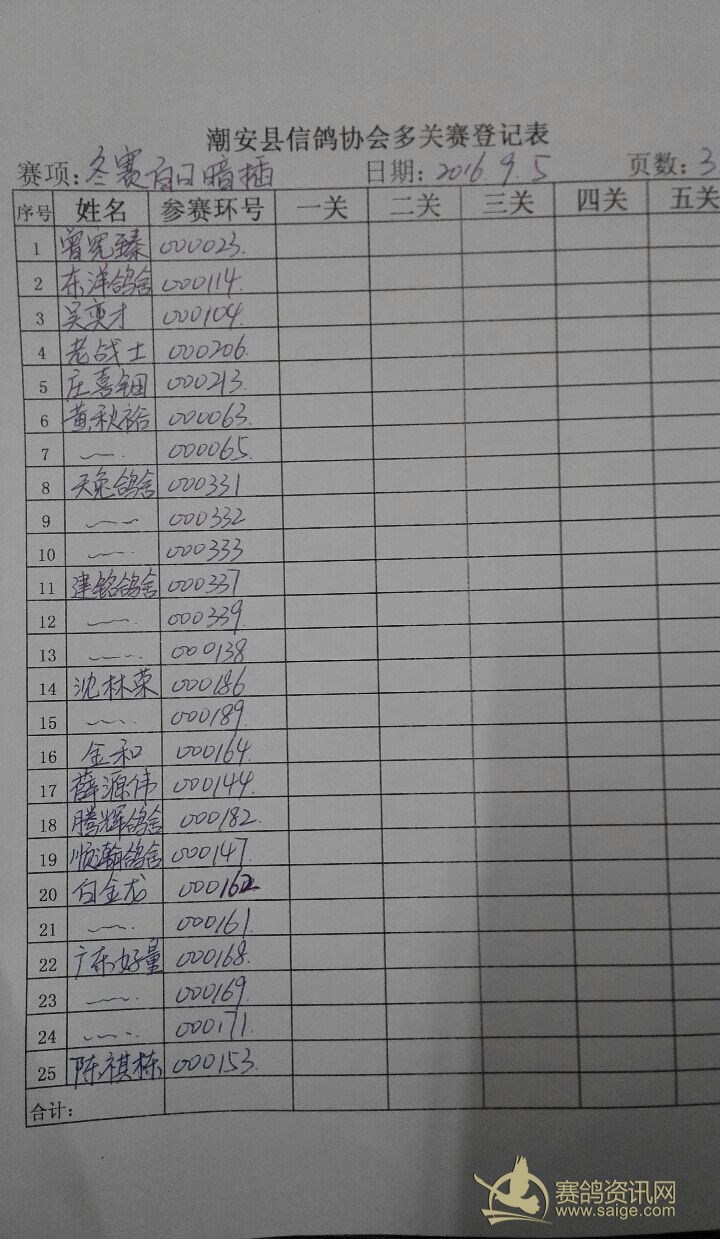 潮安县信鸽协会多关赛登记表
赛项: 冬赛百日暗插 日期: 2016.9.5 页数: 3
序号 姓名 参赛环号 一关 二关 三关 四关 五关
1 曾宪臻 000023.
2 东洋鸽舍 000114.
3 吴奕才 000104.
4 老战士 000206.
5 庄喜钿 000213.
6 黄秋裕 000063.
7 000065.
8 天兔鸽舍 000331
9 000332
10 000333
11 建铭鸽舍 000337
12 000339.
13 000138
14 沈林荣 000186
15 000189.
16 金和 000164.
17 薛源伟 000144.
18 腾辉鸽舍 000182.
19 顺瀚鸽舍 000147.
20 白金龙 000162
21 000161.
22 广东好量 000168.
23 000169.
24 000171.
25 陈祺栋 000153.
合计:
赛鸽资讯网
www.saige.com